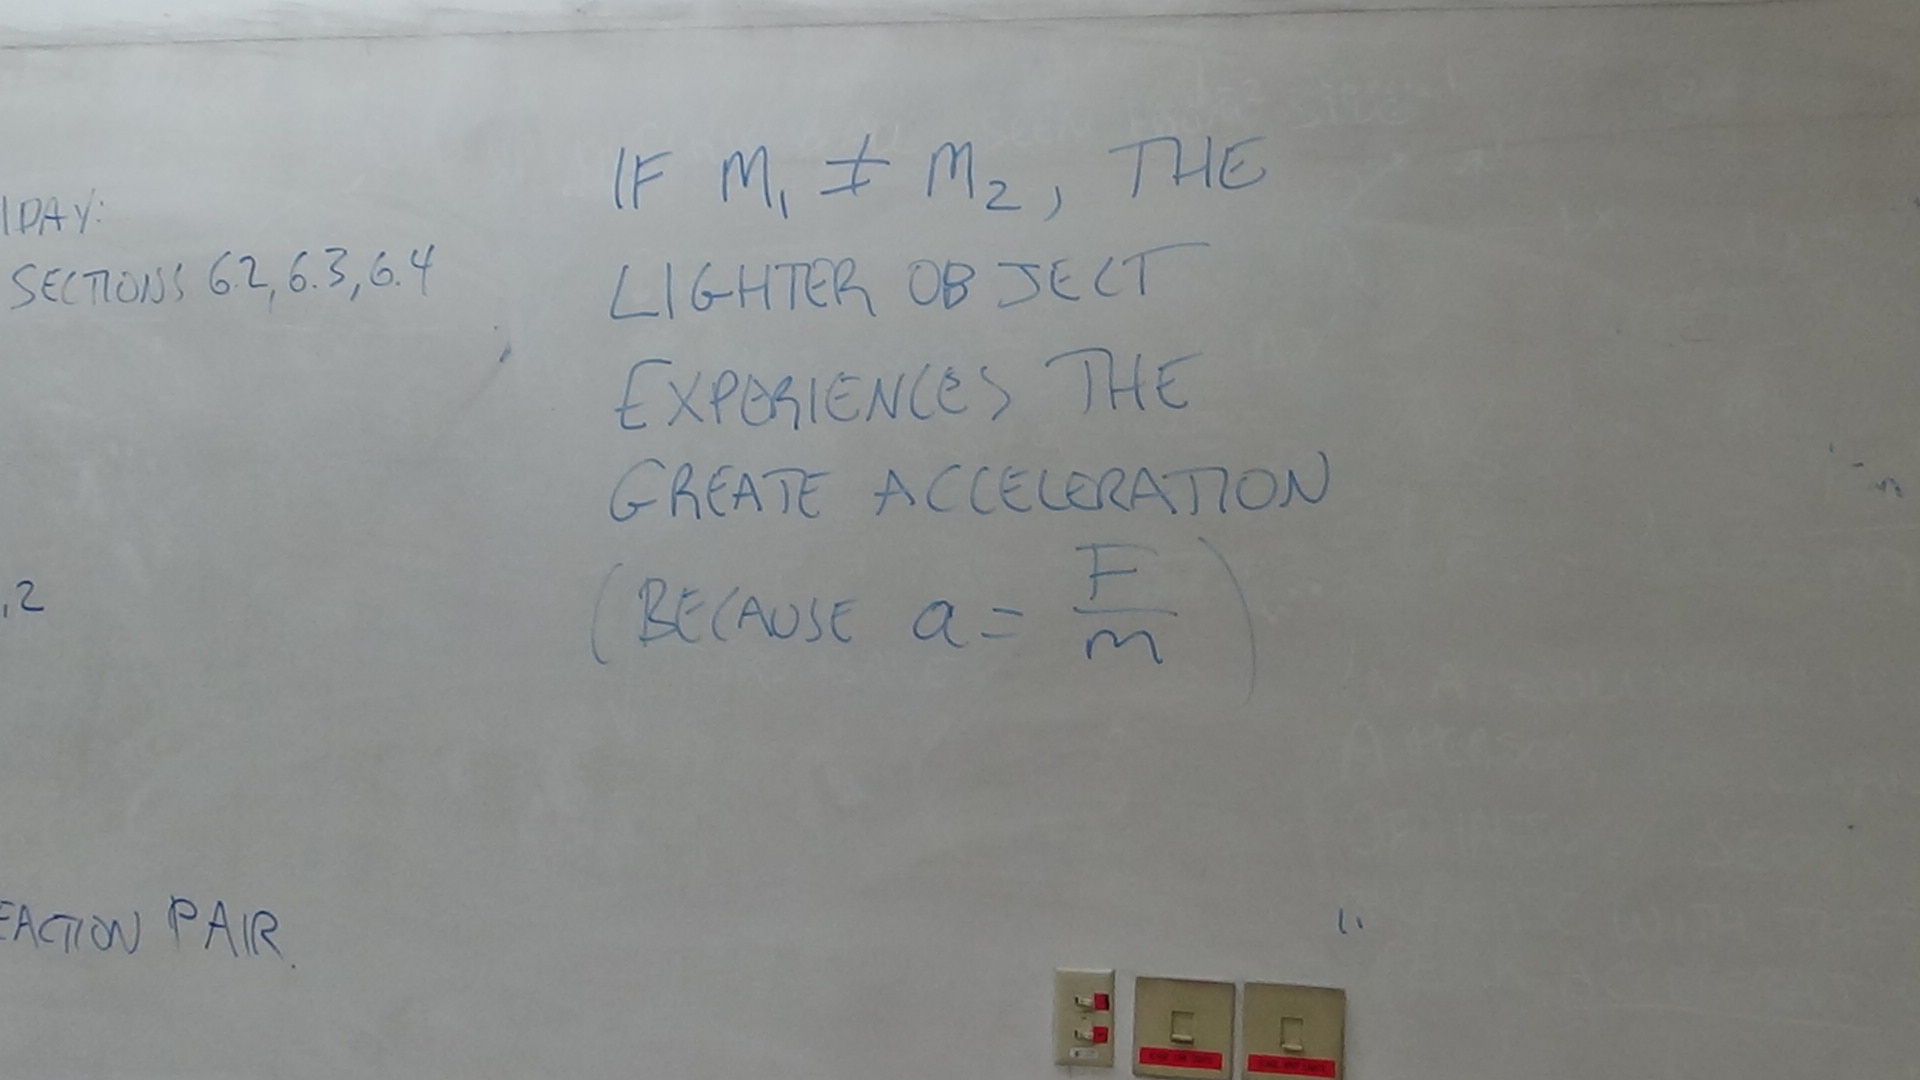 IDAY:
SECTIONS 6.2, 6.3, 6.4
,2
EACTION PAIR.
IF M₁ ≠ M₂, THE
LIGHTER OBJECT
EXPERIENCES THE
GREATE ACCELERATION
(BECAUSE a = F/m)